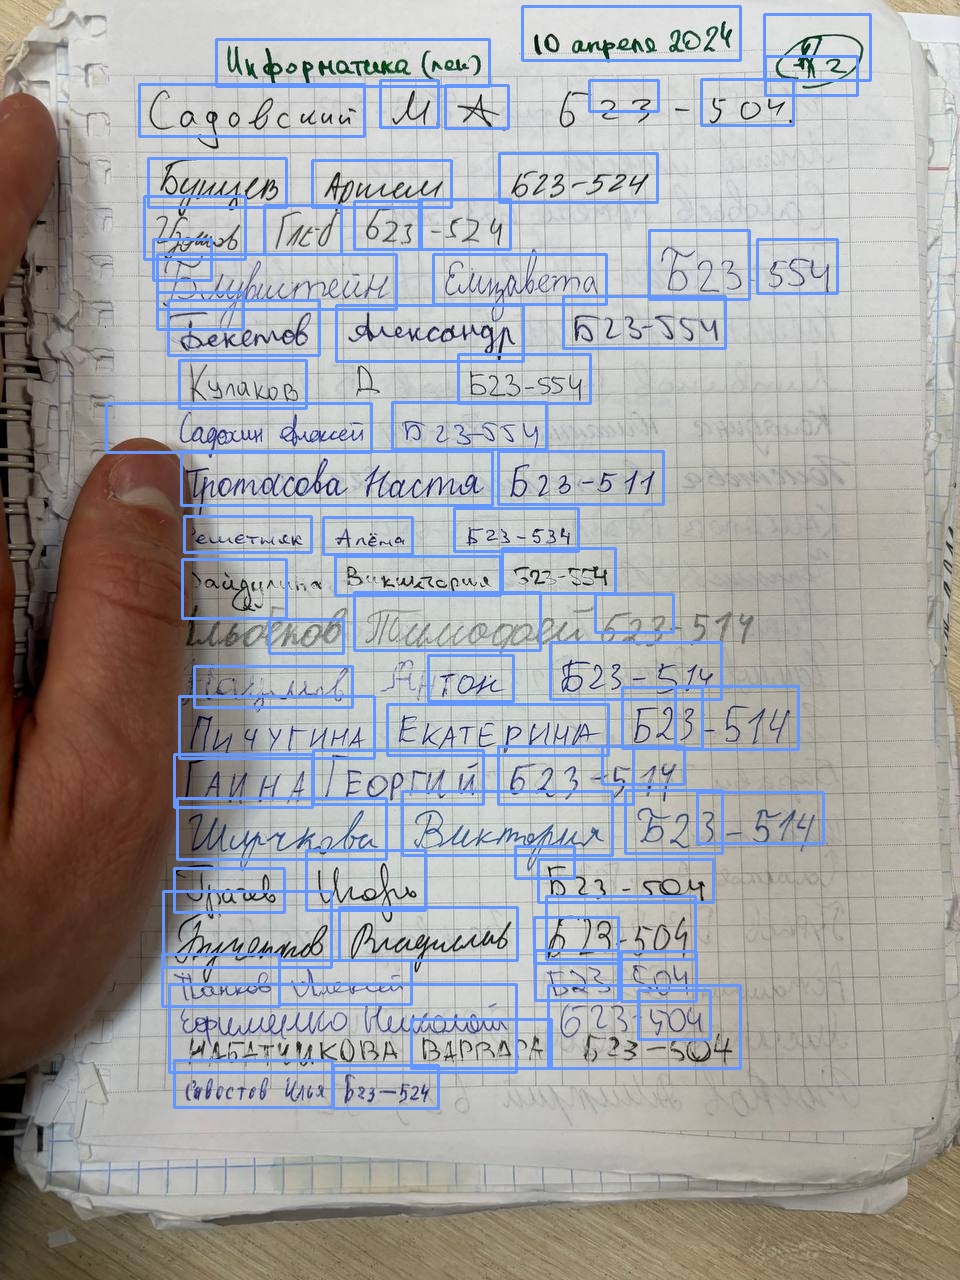 10 апреля 2024
Информатика (лек) 2
Садовский М А. Б23-504.
Артем Б23-524
Глеб Б23-524
Блувштейн Елизавета Б23-554
Бекетов Александр Б23-554
Кулаков Д Б23-554
Садохин Алексей Б23-554
Протасова Настя Б23-511
Решетняк Алёна Б23-534
Виктория Б23-554
Тимофей Б23-514
Антон Б23-514
ПИЧУГИНА ЕКАТЕРИНА Б23-514
ГАИНА ГЕОРГИЙ Б23-514
Шурчкова Виктория Б23-514
Игорь Б23-504
Владислав Б23-504
Панков Алексей Б23-504
Ефименко Николай Б23-504
ВАРВАРА Б23-504
Севостов Илья Б23-524